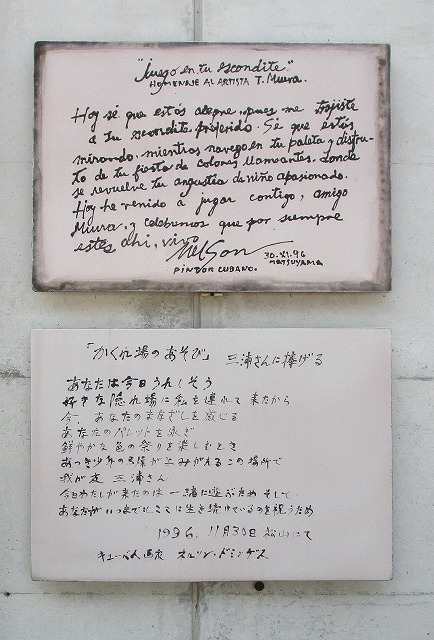 "Juego en tu escondite."
HOMENAJE AL ARTISTA T. Miura.
Hoy sé que estás alegre, pues me trajiste
a tu escondite preferido. Sé que estás
mirando, mientras navego en tu paleta y disfru-
to de tu fiesta de colores llameantes, donde
se revuelve tu angustia de niño apasionado.
Hoy he venido a jugar contigo, amigo
Miura, y celebremos que por siempre
estés ahi, vivo.
Nelson
30.XI.96
MATSUYAMA
PINTOR CUBANO.
「かくれ場のあそび」 三浦さんに捧げる
あなたは今日うれしそう
好きな隠れ場に私を連れて来たから
今、あなたのまなざしを感じる
あなたのパレットを泳ぎ
鮮やかな色の祭りを楽しむとき
あつき少年の苦悩がよみがえるこの場所で
我が友 三浦さん
今日わたしが来たのは 一緒に遊ぶため そして
あなたがいつまでもここに生き続けているのを祝うため
1996.11月30日 松山にて
キューバ人画家 ネルソン・ドミンゲス